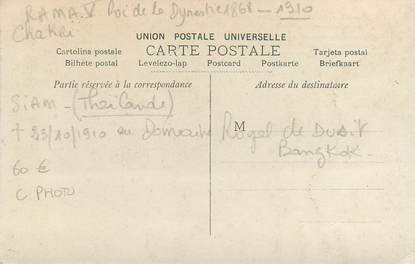 RAMA V Roi de la Dynastie 1868 - 1910
Chakri
UNION POSTALE UNIVERSELLE
Cartolina postale CARTE POSTALE Tarjeta postal
Bilhete postal Levelezo-lap Postcard Postkarte Briefkaart
Partie réservée à la correspondance
Adresse du destinataire
SIAM - (Thaïlande)
M
+ 23/10/1910 au Domaine Royal de Dusit
Bangkok.
60 €
C PHOTO